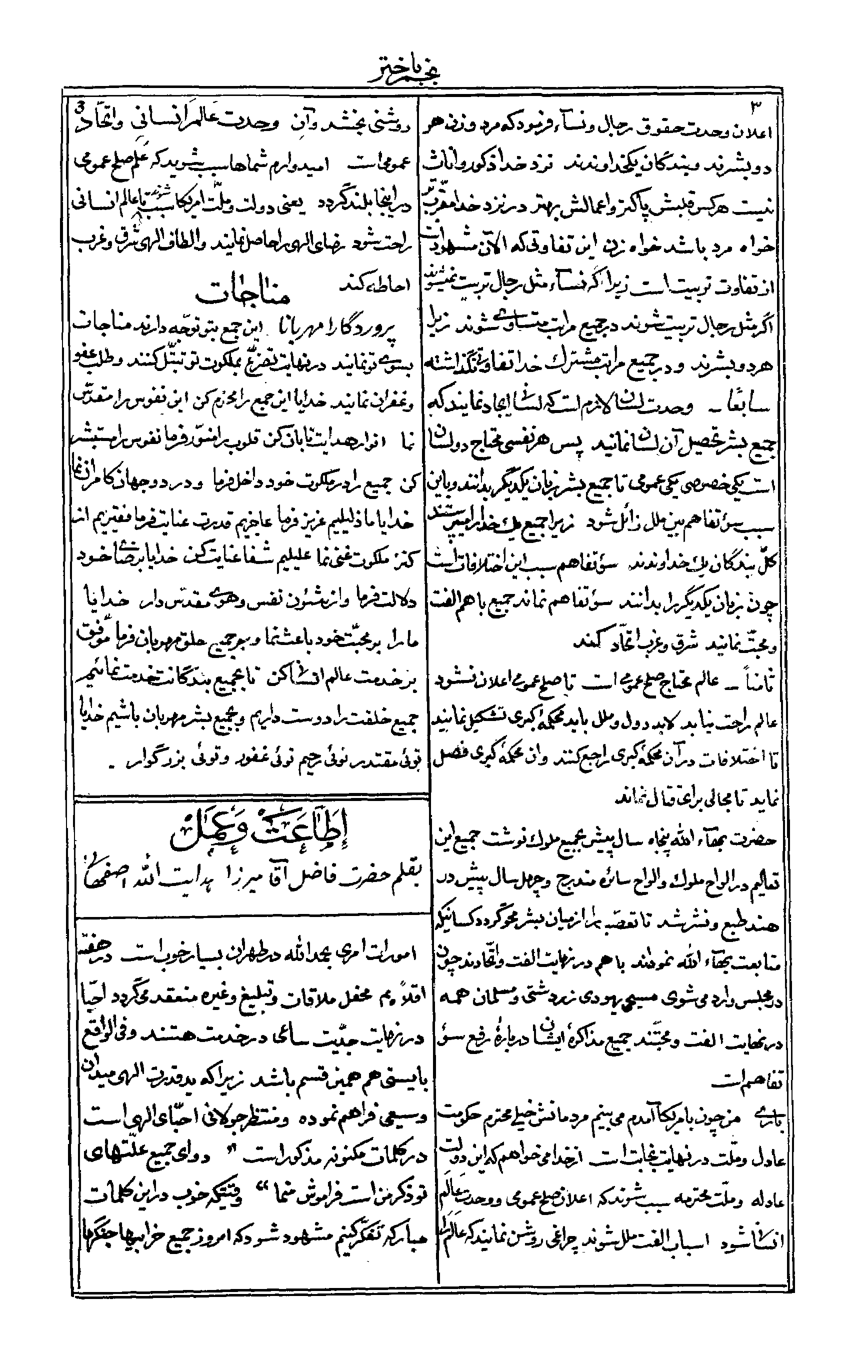 نجم باختر
۳
اعلان وحدت حقوق رجال ونسآء فرمود که مرد وزن هر
دو بشرند و بندگان یکخداوندند نزد خدا ذکور واناث
نیست هر کس قلبش پاکتر واعمالش بهتر در نزد خدا مقرّب تر
خواه مرد باشد خواه زن این تفاوتی که الآن مشهود است
از تفاوت تربیت است زیرا که نسآء مثل رجال تربیت نمیشوند
اگر مثل رجال تربیت شوند در جمیع مراتب متساوی شوند زیرا
هر دو بشرند و در جمیع مراتب مشترک خدا تفاوتی نگذاشته
سابعًا – وحدت لسان لازم است که لسانی ایجاد نمایند که
جمیع بشر تحصیل آن لسان نمایند پس هر نفسی محتاج دو لسان
است یکی خصوصی یکی عمومی تا جمیع بشر زبان یکدیگر بدانند و باین
سبب سوء تفاهم بین ملل زائل شود زیرا جمیع یک خدا را میپرستند
کلّ بندگان یک خداوندند سوء تفاهم سبب این اختلافات است
چون زبان یکدیگر را بدانند سوء تفاهم نماند جمیع با هم الفت
ومحبّت نمایند شرق وغرب اتّحاد کنند
ثامناً – عالم محتاج صلح عمومی است تا صلح عمومی اعلان نشود
عالم راحت نیابد لابد دول و ملل باید محکمهٔ کبری تشکیل نمایند
تا اختلافات در آن محکمهٔ کبری راجع کنند وآن محکمهٔ کبری فصل
نماید تا مجالی برای قتال نماند
حضرت بهآء الله پنجاه سال پیش بجمیع ملوک نوشت جمیع این
تعالیم در الواح ملوک والواح سائره مندرج وچهل سال پیش در
هند طبع ونشر شد تا تعصّب را از میان بشر محو گردد کسانیکه
متابعت بهآء الله نموده‌اند با هم در نهایت الفت واتّحادند چون
در مجلس وارد می شوی مسیحی یهودی زردشتی ومسلمان همه
در نهایت الفت ومحبّتند جمیع مذاکرهٔ ایشان دربارهٔ رفع سوء
تفاهم است
باری من چون بامریکا آمدم می بینم مردمانش خیلی محترم حکومت
عادل وملّت در نهایت نجابت است از خدا می خواهم که این دولت
عادله وملّت محترمه سبب شوند که اعلان صلح عمومی ووحدت عالم
انسانی شود اسباب الفت ملل شوند چراغی روشن نمایند که عالم را
3
روشنی بخشد وآن وحدت عالم انسانی واتّحاد
عمومی است امیدوارم شماها سبب شوید که عَلَم صلح عمومی
در اینجا بلند گردد یعنی دولت وملّت امریکا سبب شوند تا عالم انسانی
راحت شود رضای الهی را حاصل نمایند والطاف الهی شرق وغرب
احاطه کند
مناجات
پروردگارا مهربانا این جمع بتو توجّه دارند مناجات
بسوی تو نمایند در نهایت تضرّع بملکوت تو تبتّل کنند وطلب عفو
وغفران نمایند خدایا این جمع را محترم کن این نفوس را مقدّس
نما انوار هدایت تابان کن قلوب را منوّر فرما نفوس را مستبشر
کن جمیع را در ملکوت خود داخل فرما و در دو جهان کامران نما
خدایا ما ذلیلیم عزیز فرما عاجزیم قدرت عنایت فرما فقیریم از
کنز ملکوت غنی نما علیلیم شفا عنایت کن خدایا برضای خود
دلالت فرما و از شئون نفس وهوی مقدّس دار خدایا
ما را بر محبّت خود ثابت نما و بر جمیع خلق مهربان فرما موفّق
بر خدمت عالم انسانی کن تا بجمیع بندگانت خدمت نمائیم
جمیع خلقت را دوست داریم وبجمیع بشر مهربان باشیم خدایا
توئی مقتدر توئی رحیم توئی غفور وتوئی بزرگوار .
إِطَاعَتْ وَعَمَلْ
بقلم حضرت فاضل آقا میرزا هدایت الله اصفهانی
امورات امری بحمد الله در طهران بسیار خوب است در هفته
اقلاً دو محفل ملاقات وتبلیغ وغیره منعقد می گردد احبّا
در نهایت جدّیت ساعی در خدمت هستند وفی الواقع
بایستی هم همین قسم باشد زیرا که ید قدرت الهی میدان
وسیعی فراهم نموده ومنتظر جولانی احبّای الهی است
در کلمات مکنونه مذکور است " دوای جمیع علّتهای
تو ذکر من است فراموش منما " وقتیکه خوب در این کلمات
مبارکه تفکّر کنیم مشهود شود که امروز جمیع خرابیها جنگها